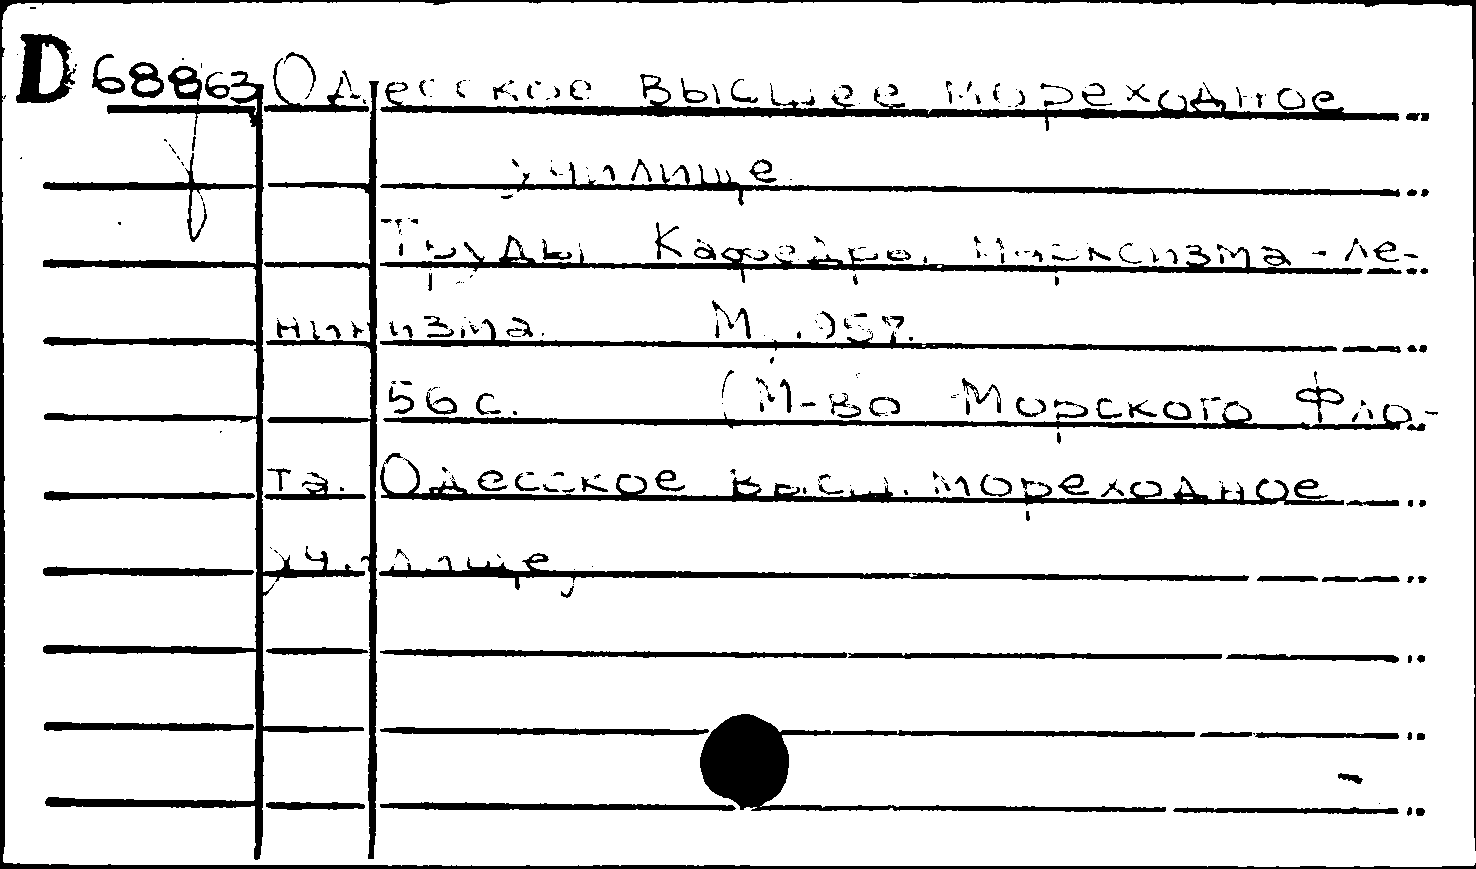 D 68863 Одесское высшее мореходное
училище
Труды Кафедры Марксизма-ле-
нинизма. М., 1957.
56 с. (М-во Морского Фло-
та. Одесское высш. мореходное
училище)